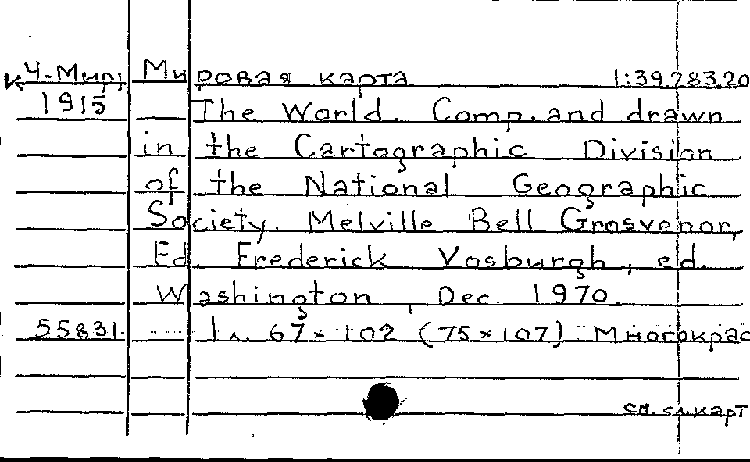 К Ч-Мир, Мировая карта 1:39.283.20
1915 The World. Comp. and drawn
in the Cartographic Division
of the National Geographic
Society. Melville Bell Grosvenor,
Ed. Frederick Vosburgh, ed.
Washington, Dec. 1970.
55831. 1 л. 67×102 (75×107). Многокрас
см. сл. карт